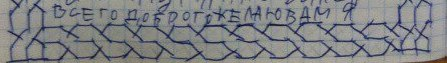 ВСЕГО ДОБРОГО ЖЕЛАЮ ВАМ Я